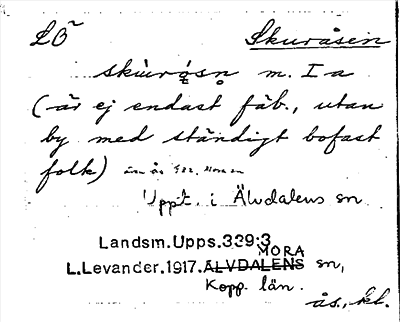 LÖ Skuråsen
skùrǫsn m. I a
(är ej endast fäb., utan
by med ständigt bofast
folk)
Uppt. i Älvdalens sn
Landsm. Upps. 339:3
L. Levander. 1917. ÄLVDALENS MORA sn,
Kopp. län.
ås, kl.